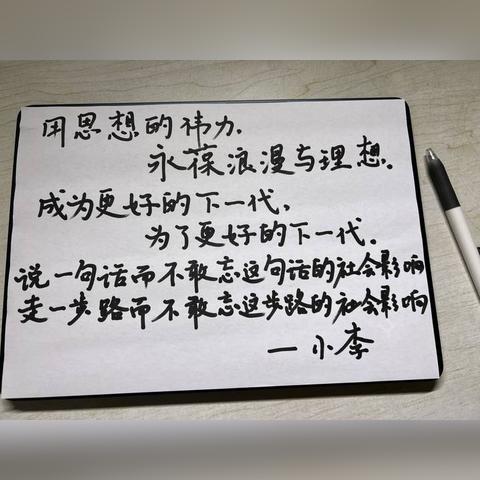 用思想的祎力.
永葆浪漫与理想.
成为更好的下一代,
为了更好的下一代.
说一句话而不敢忘这句话的社会影响
走一步路而不敢忘这步路的社会影响
一小李